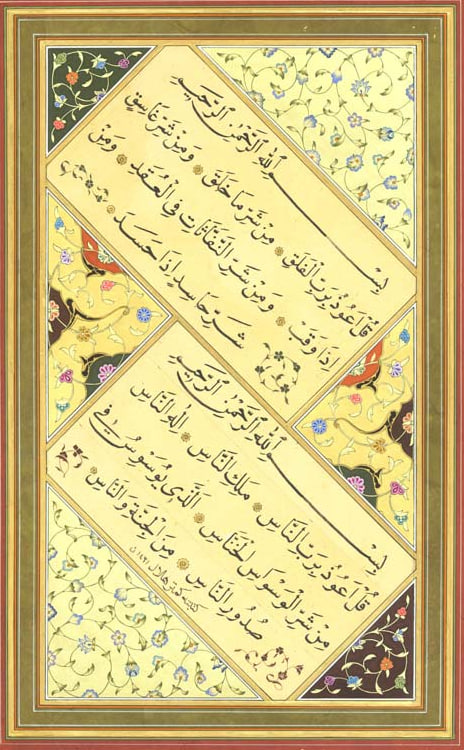 بسم الله الرحمن الرحيم
قل اعوذ برب الفلق من شر ما خلق ومن شر غاسق
اذا وقب ومن شر النفاثات في العقد ومن
شر حاسد اذا حسد
بسم الله الرحمن الرحيم
قل اعوذ برب الناس ملك الناس اله الناس
من شر الوسواس الخناس الذي يوسوس في
صدور الناس من الجنة والناس